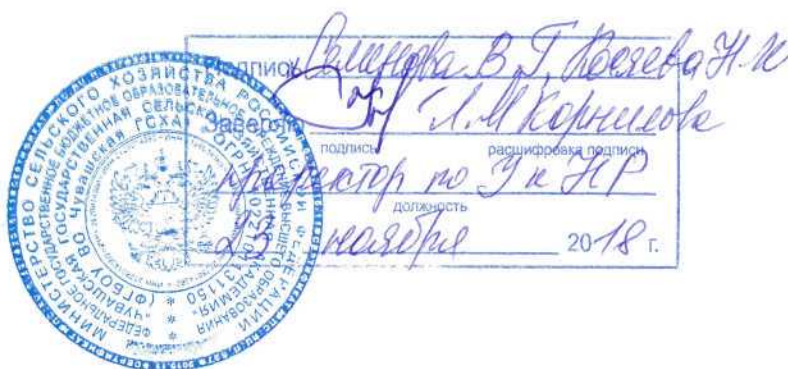 Подпись Семенова В.Г, Косяева Н.И
Заверяю Л.М Корнилова
подпись расшифровка подписи
проректор по У и НР
должность
23 ноября 2018 г.
МИНИСТЕРСТВО СЕЛЬСКОГО ХОЗЯЙСТВА РОССИЙСКОЙ ФЕДЕРАЦИИ
ФЕДЕРАЛЬНОЕ ГОСУДАРСТВЕННОЕ БЮДЖЕТНОЕ ОБРАЗОВАТЕЛЬНОЕ УЧРЕЖДЕНИЕ ВЫСШЕГО ОБРАЗОВАНИЯ
"ЧУВАШСКАЯ ГОСУДАРСТВЕННАЯ СЕЛЬСКОХОЗЯЙСТВЕННАЯ АКАДЕМИЯ"
(ФГБОУ ВО Чувашская ГСХА) ОГРН